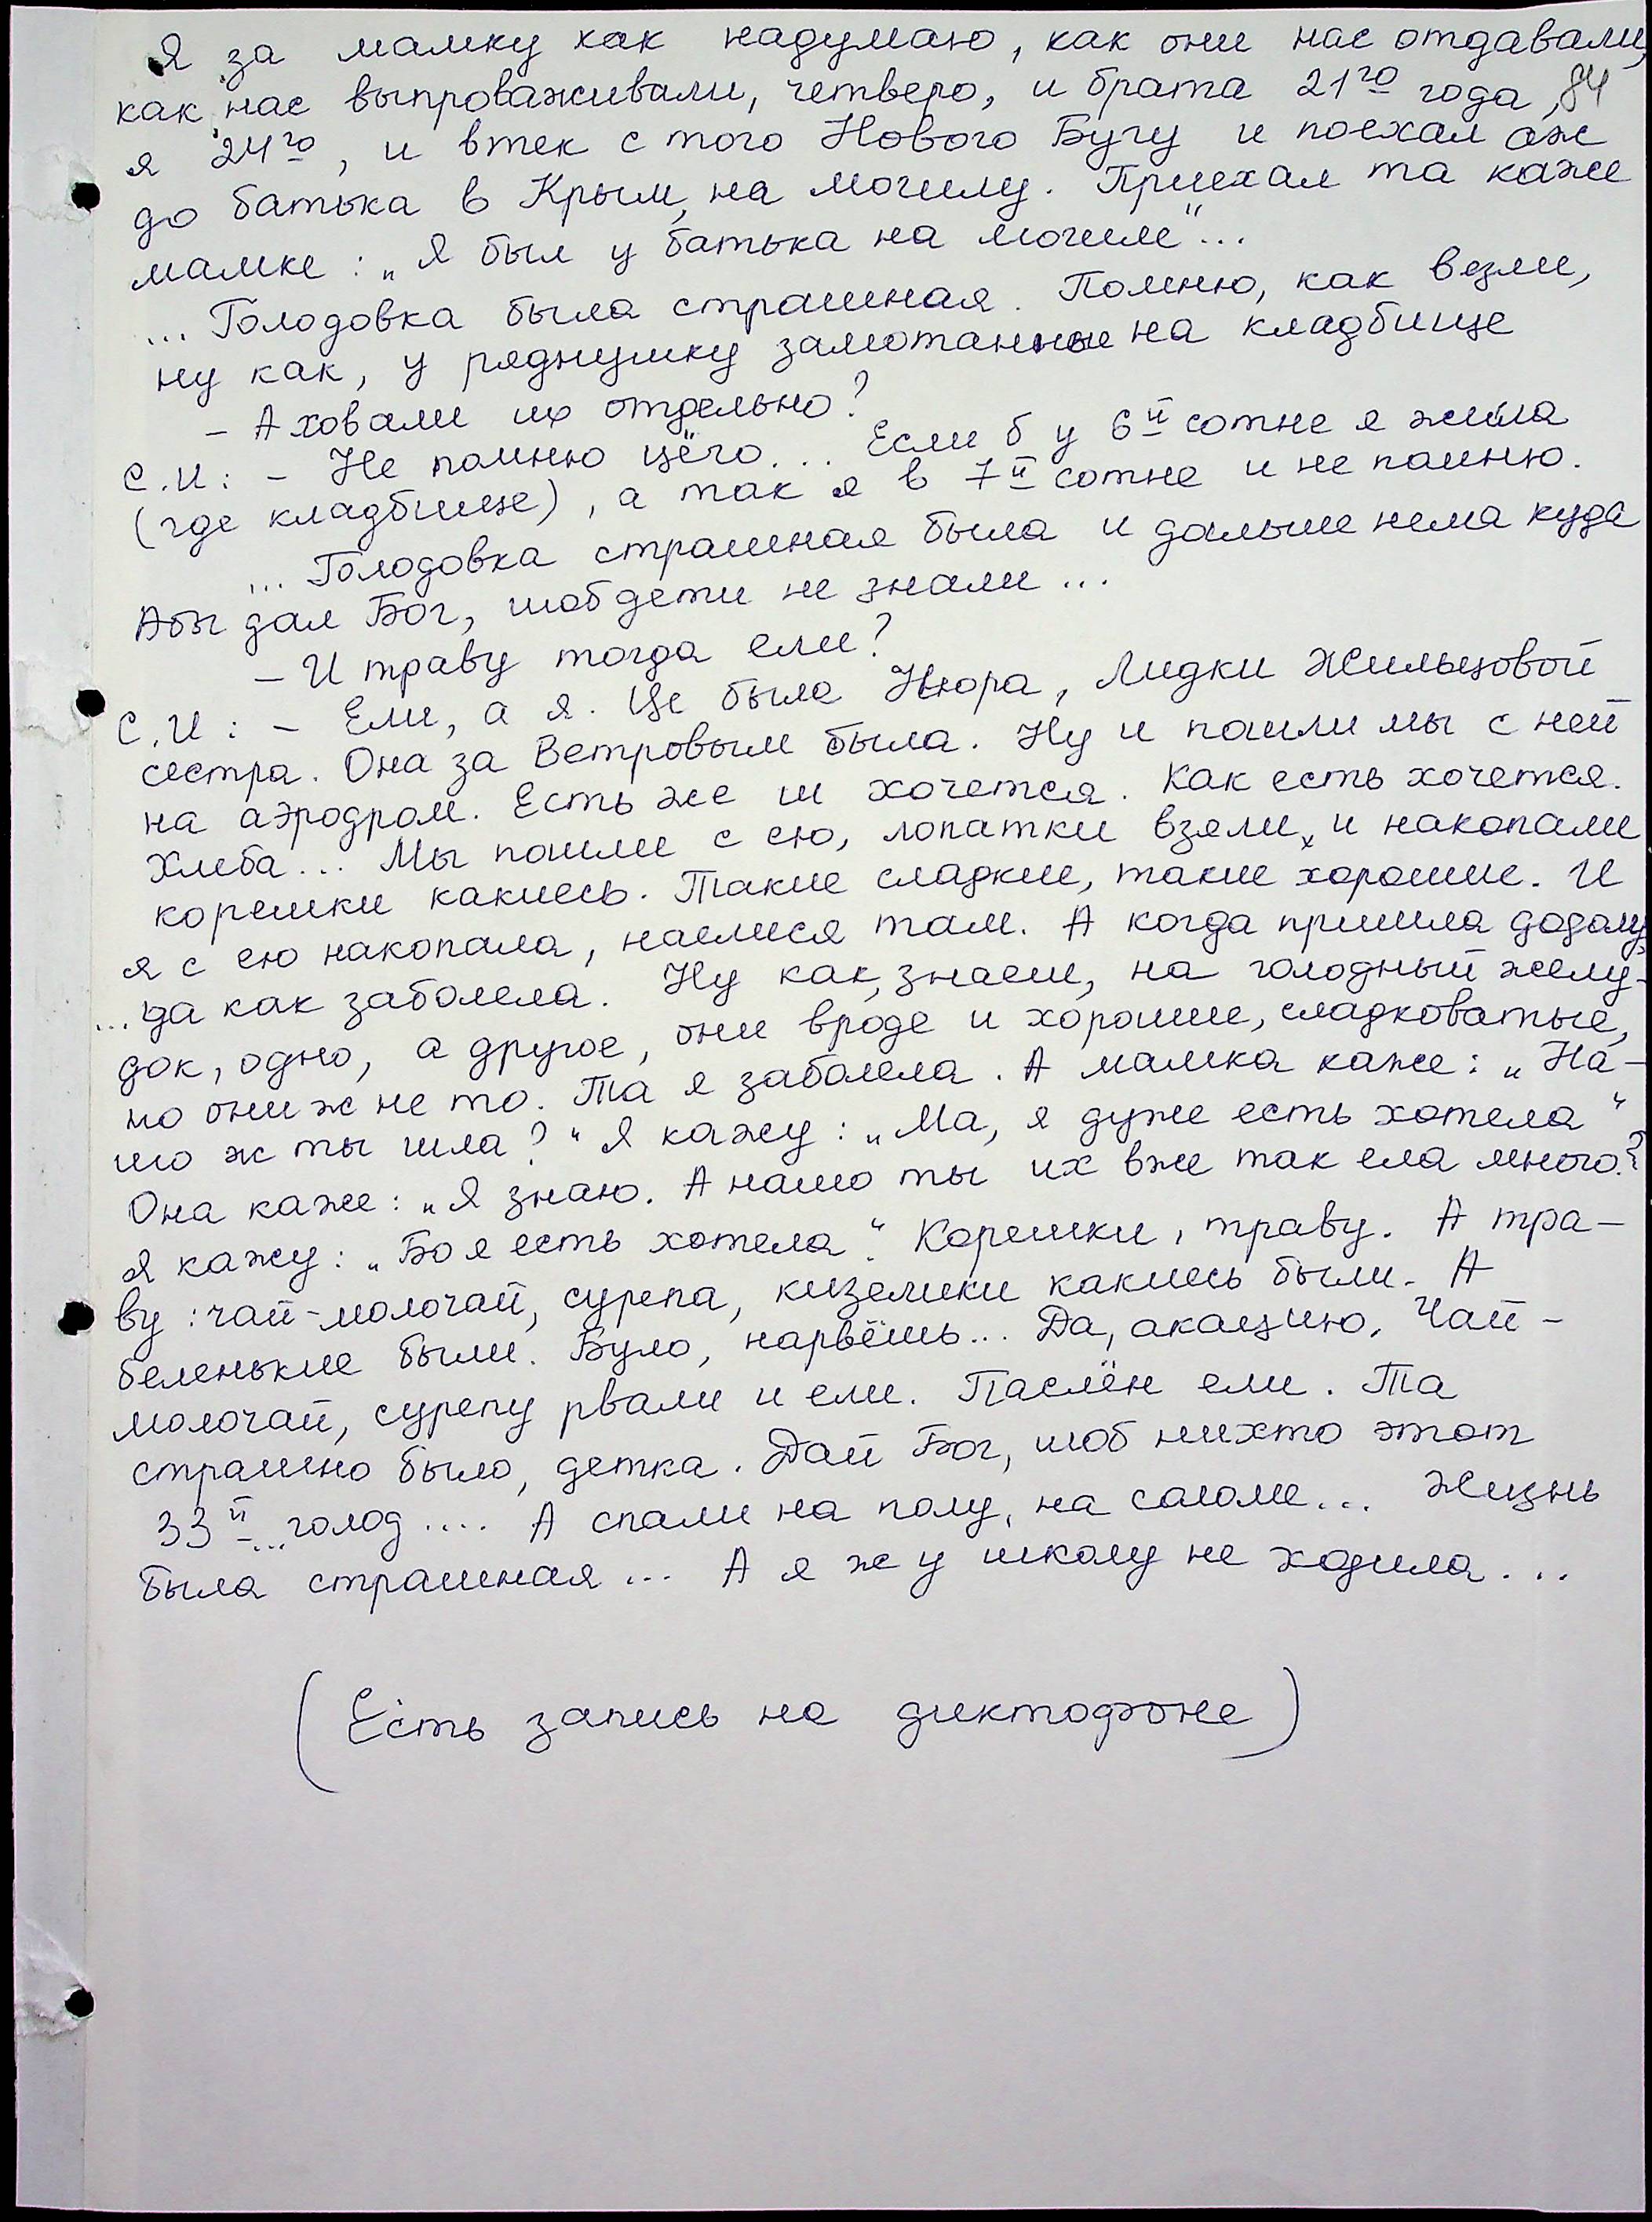 Я за мамку как надумаю, как они нас отдавали,
как нас выпроваживали, четверо, и брата 21го года,
84
я 24го, и втек с того Нового Бугу и поехал аж
до батька в Крым, на могилу. Приехал та каже
мамке: „Я был у батька на могиле"...
... Голодовка была страшная. Помню, как везли,
ну как, у ряднушку замотанные на кладбище
- А ховали их отдельно?
С.И: - Не помню цёго... Если б у 6й сотне я жила
(где кладбище), а так я в 7й сотне и не помню.
... Голодовка страшная была и дальше нема куда
Абы дал Бог, шоб дети не знали...
- И траву тогда ели?
С.И: - Ели, а я. Це была Нюра, Лидки Жильцовой
сестра. Она за Ветровым была. Ну и пошли мы с ней
на аэродром. Есть же ш хочется. Как есть хочется.
Хлеба... Мы пошли с ею, лопатки взяли, и накопали
корешки какиесь. Такие сладкие, такие хорошие. И
я с ею накопала, наелися там. А когда пришла додому,
... да как заболела. Ну как, знаеш, на голодный желу-
док, одно, а другое, они вроде и хорошие, сладковатые,
но они ж не то. Та я заболела. А мамка каже: „На-
шо ж ты шла?" Я кажу: „Ма, я дуже есть хотела"
Она каже: „Я знаю. А нашо ты их вже так ела много?
Я кажу: „Бо я есть хотела". Корешки, траву. А тра-
ву: чай-молочай, сурепа, кизелики какиесь были. А
беленькие были. Було, нарвёшь... Да, акацию. Чай-
молочай, сурепу рвали и ели. Паслён ели. Та
страшно было, детка. Дай Бог, шоб нихто этот
33й... голод.... А спали на полу, на соломе... Жизнь
была страшная... А я ж у школу не ходила...
(Есть запись на диктофоне)